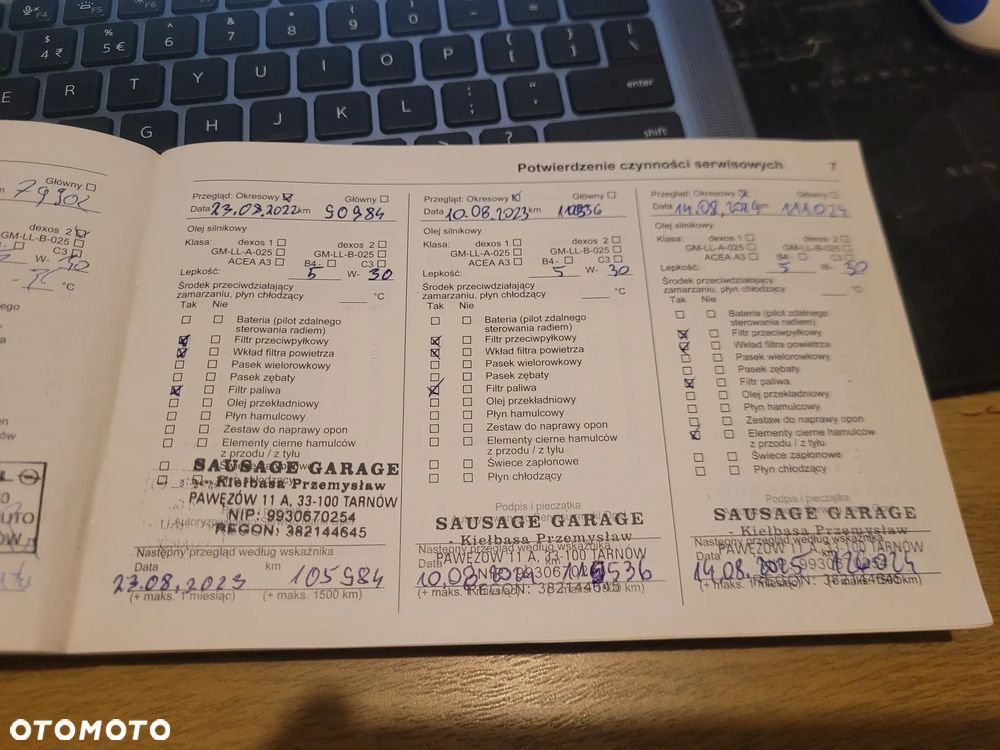 Potwierdzenie czynności serwisowych 7
Główny
79902
dexos 2
GM-LL-B-025
C3
W- 30
°C
Przegląd: Okresowy Główny
Data 23.08.2022 km 90984
Olej silnikowy
Klasa: dexos 1 dexos 2
GM-LL-A-025 GM-LL-B-025
ACEA A3 B4- C3
Lepkość: 5 W- 30
Środek przeciwdziałający
zamarzaniu, płyn chłodzący °C
Tak Nie
Bateria (pilot zdalnego
sterowania radiem)
Filtr przeciwpyłkowy
Wkład filtra powietrza
Pasek wielorowkowy
Pasek zębaty
Filtr paliwa
Olej przekładniowy
Płyn hamulcowy
Zestaw do naprawy opon
Elementy cierne hamulców
z przodu / z tyłu
SAUSAGE GARAGE
- Kiełbasa Przemysław
PAWĘZÓW 11 A, 33-100 TARNÓW
NIP: 9930670254
REGON: 382144645
Następny przegląd według wskaźnika
Data km
23.08.2023 105984
(+ maks. 1 miesiąc) (+ maks. 1500 km)
Przegląd: Okresowy Główny
Data 10.08.2023 km
Olej silnikowy
Klasa: dexos 1 dexos 2
GM-LL-A-025 GM-LL-B-025
ACEA A3 B4- C3
Lepkość: 5 W- 30
Środek przeciwdziałający
zamarzaniu, płyn chłodzący °C
Tak Nie
Bateria (pilot zdalnego
sterowania radiem)
Filtr przeciwpyłkowy
Wkład filtra powietrza
Pasek wielorowkowy
Pasek zębaty
Filtr paliwa
Olej przekładniowy
Płyn hamulcowy
Zestaw do naprawy opon
Elementy cierne hamulców
z przodu / z tyłu
Świece zapłonowe
Płyn chłodzący
Podpis i pieczątka
SAUSAGE GARAGE
- Kiełbasa Przemysław
Następny przegląd według wskaźnika
PAWĘZÓW 11 A, 33-100 TARNÓW
Data
10.08.2024
REGON: 382144645
Przegląd: Okresowy Główny
Data 14.08.2024 km 111024
Olej silnikowy
Klasa: dexos 1 dexos 2
GM-LL-A-025 GM-LL-B-025
ACEA A3 B4- C3
Lepkość: 5 W- 30
Środek przeciwdziałający
zamarzaniu, płyn chłodzący °C
Tak Nie
Bateria (pilot zdalnego
sterowania radiem)
Filtr przeciwpyłkowy
Wkład filtra powietrza
Pasek wielorowkowy
Pasek zębaty
Filtr paliwa
Olej przekładniowy
Płyn hamulcowy
Zestaw do naprawy opon
Elementy cierne hamulców
z przodu / z tyłu
Świece zapłonowe
Płyn chłodzący
Podpis i pieczątka
SAUSAGE GARAGE
- Kiełbasa Przemysław
Następny przegląd według wskaźnika
Data
14.08.2025
OTOMOTO